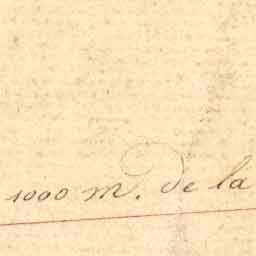 1000 m. de la